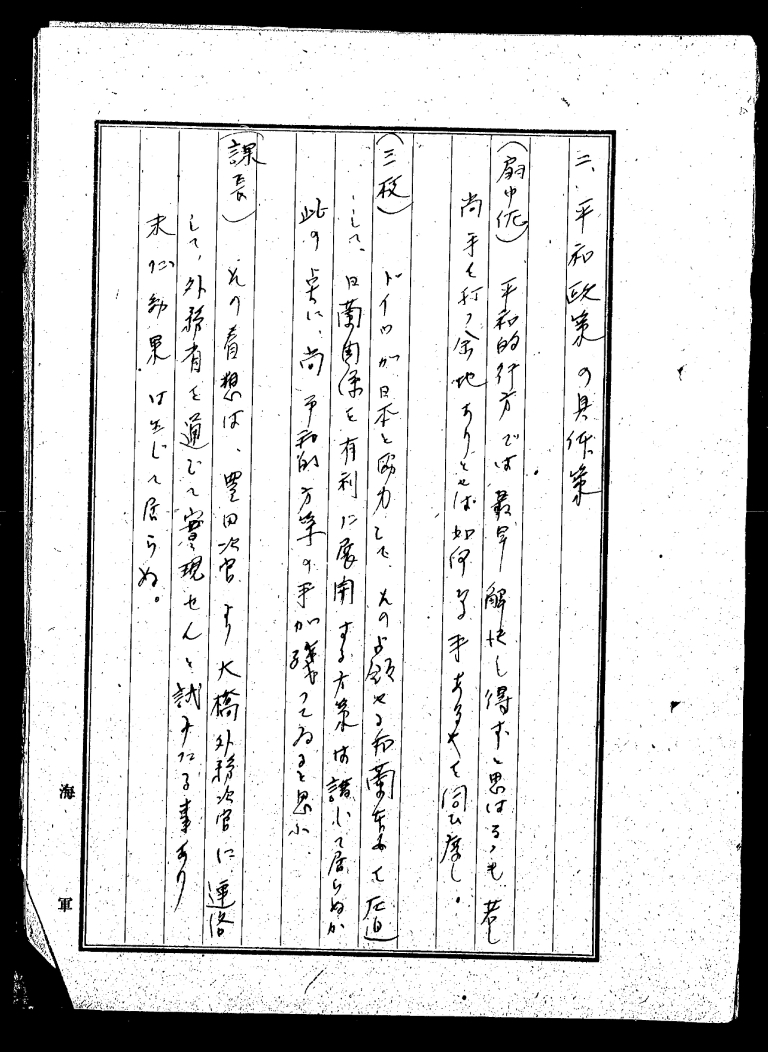 二、平和政策の具体策
(扇中佐) 平和的行方では最早解決し得ずと思はるゝも若し
尚手を打つ余地ありとせば如何なる手あるやを伺ひ度し。
(三校) ドイツが日本と協力して、その占領せる和蘭本国を圧迫
して、日蘭関係を有利に展開する方策は講じて居らぬか
此の点に、尚平和的方策の手が残つてゐると思ふ
(課長) その着想は、豊田次官より大橋外務次官に連絡
して、外務省を通じて實現せんと試みたる事あり
未だ効果は生じて居らぬ。
海軍